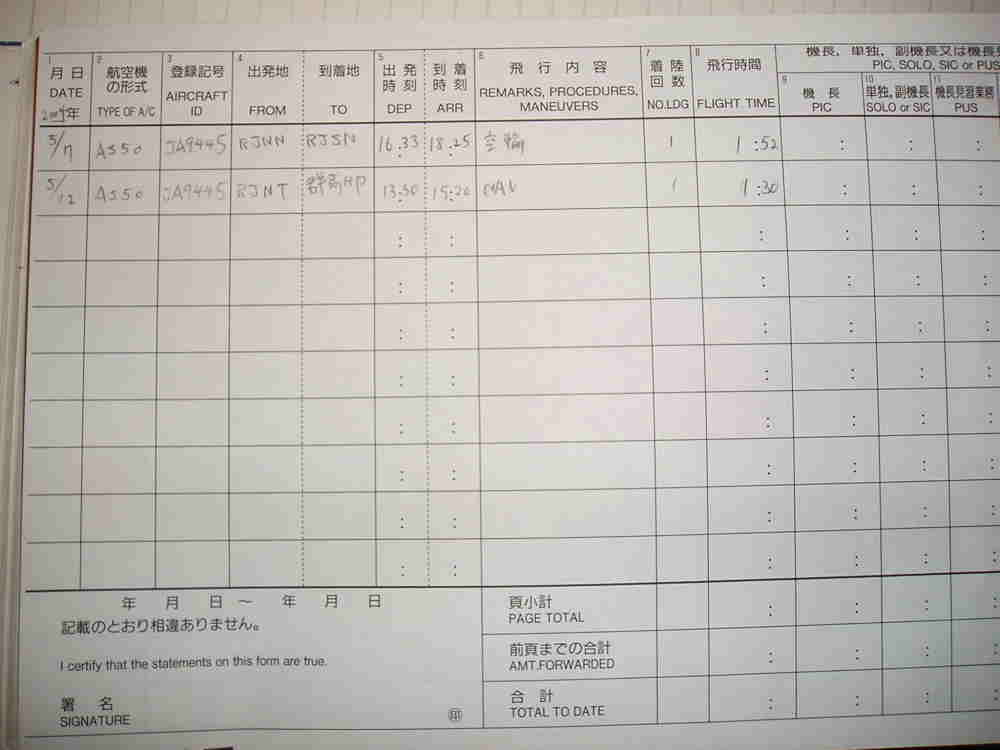 1 月 日 DATE 2009年
2 航空機の形式 TYPE OF A/C
3 登録記号 AIRCRAFT ID
4 出発地 FROM
到着地 TO
5 出発時刻 DEP
到着時刻 ARR
6 飛行内容 REMARKS, PROCEDURES, MANEUVERS
7 着陸回数 NO.LDG
8 飛行時間 FLIGHT TIME
機長, 単独, 副機長又は機長見
PIC, SOLO, SIC or PUS
9 機長 PIC
10 単独,副機長 SOLO or SIC
11 機長見習業務 PUS
5/7 AS50 JA9445 RJNN RJSN 16:33 18:25 空輸 1 1:52
5/12 AS50 JA9445 RJNT 群馬HP 13:50 15:20 1 1:30
年 月 日 ~ 年 月 日
記載のとおり相違ありません。
I certify that the statements on this form are true.
署 名
SIGNATURE
印
頁小計
PAGE TOTAL
前頁までの合計
AMT.FORWARDED
合 計
TOTAL TO DATE